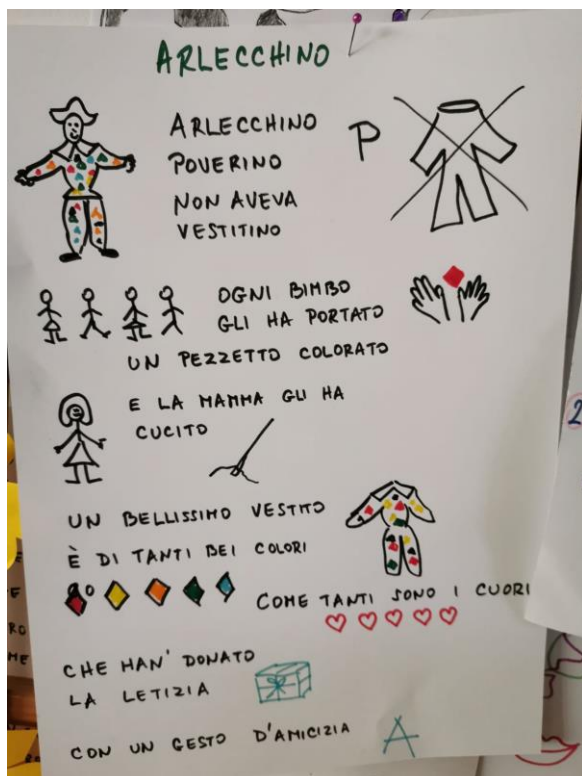 ARLECCHINO
ARLECCHINO
P
POVERINO
NON AVEVA
VESTITINO
OGNI BIMBO
GLI HA PORTATO
UN PEZZETTO COLORATO
E LA MAMMA GLI HA
CUCITO
UN BELLISSIMO VESTITO
È DI TANTI BEI COLORI
COME TANTI SONO I CUORI
CHE HAN' DONATO
LA LETIZIA
CON UN GESTO D'AMICIZIA
A
2
E
RO
ME